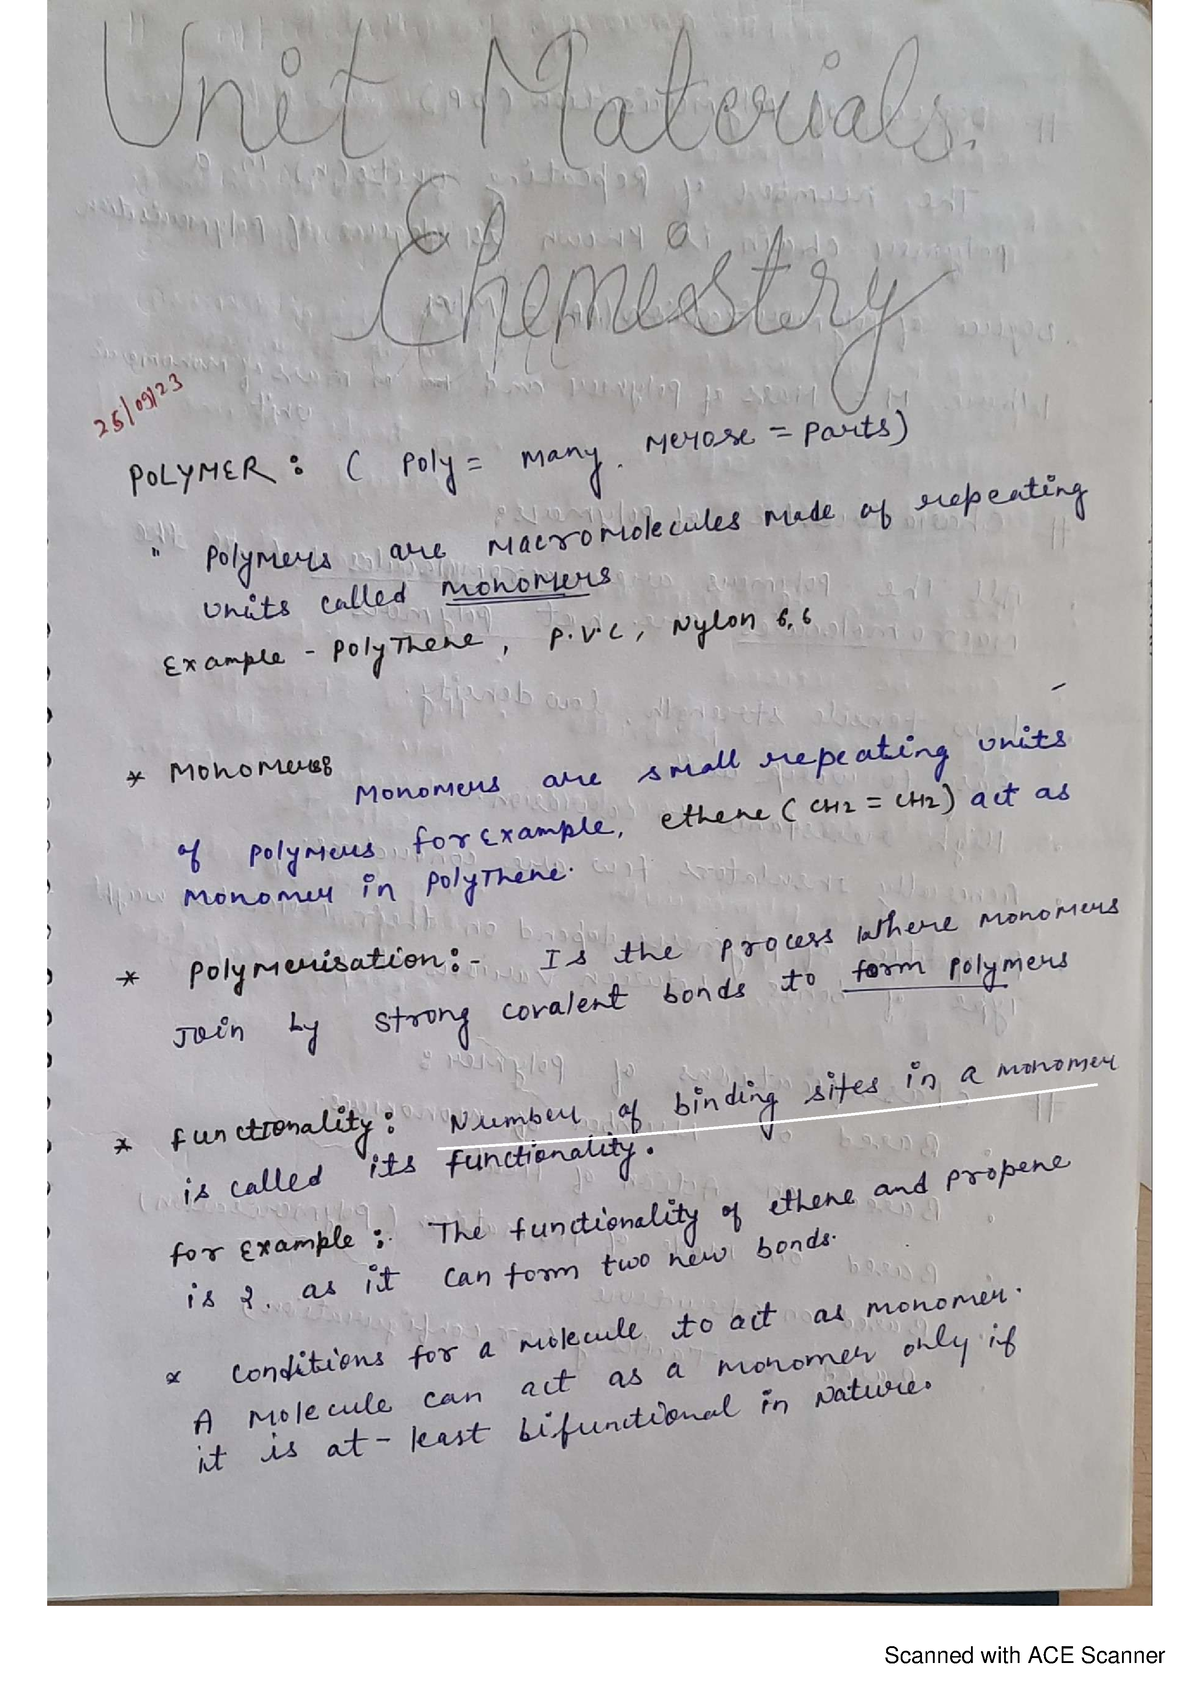 Unit Materials.
Chemistry
25/09/23
POLYMER : ( Poly = many. Merose = Parts)
" Polymers are macromolecules made of repeating
units called monomers
Example - PolyThene, P.V.C, Nylon 6,6
* Monomers
Monomers are small repeating units
of polymers for example, ethene ( CH2 = CH2 ) act as
monomer in PolyThene.
* Polymerisation :- Is the process Where monomers
Join by strong covalent bonds to form polymers
* functionality : Number of binding sites in a monomer
is called its functionality.
for Example : The functionality of ethene and propene
is 2. as it can form two new bonds.
* Conditions for a molecule to act as monomer.
A Molecule can act as a monomer only if
it is at-least bifunctional in Nature.
Scanned with ACE Scanner